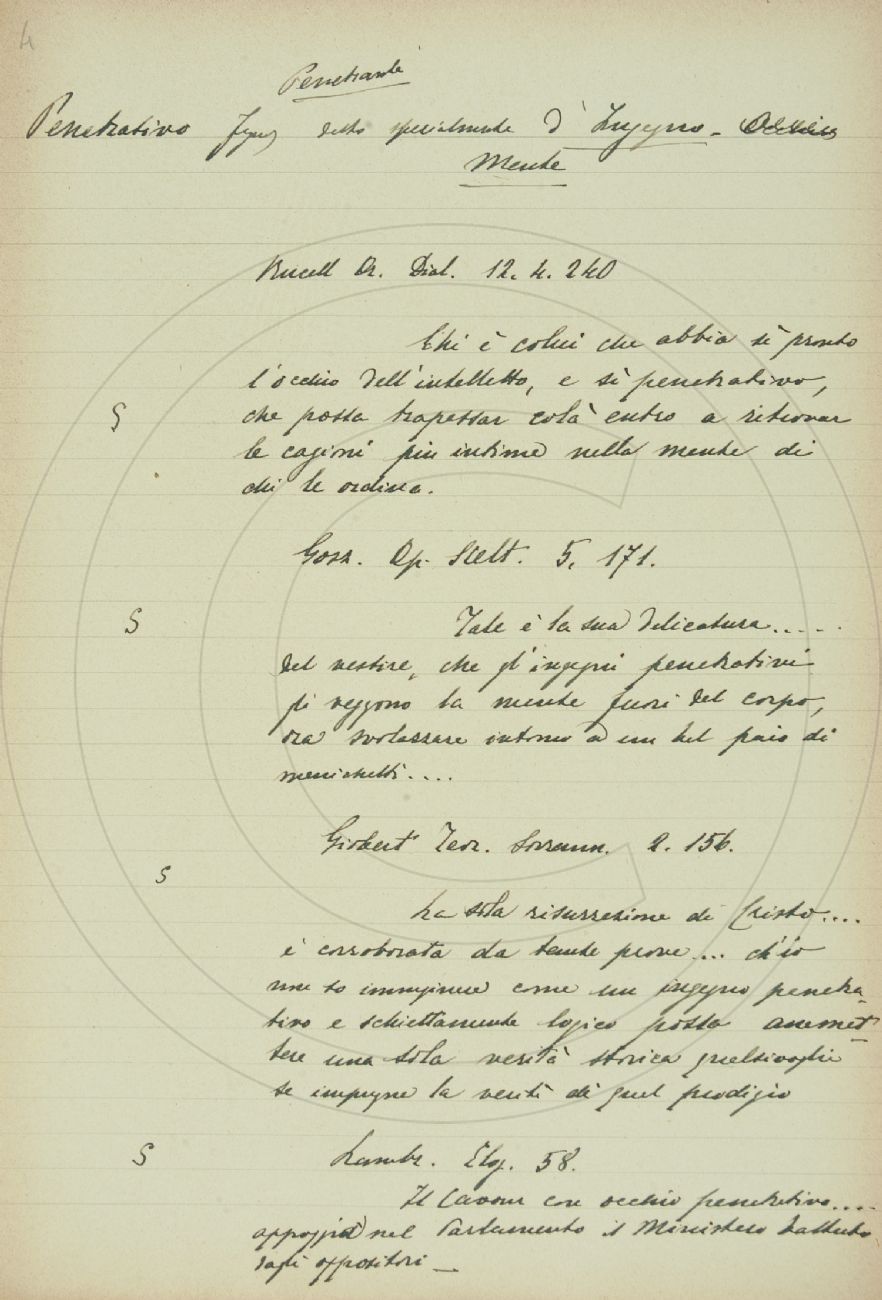 4
Penetrante
Penetrativo Figur detto specialmente d'Ingegno - Occhio
Mente
Rucell Or. Dial. 12. 4. 240
Chi è colui che abbia sì pronto
l'occhio dell'intelletto, e sì penetrativo,
S che possa trapassar colà entro a ritrovar
le cagioni più intime nella mente di
chi le ordina.
Gozz. Op. Scelt. 5. 171.
S Tale è la sua delicatura.....
del vestire, che gl'ingegni penetrativi
gli veggono la mente fuori del corpo,
ora svolazzare intorno a un bel paio di
manichetti....
Giobert Teor. Sovrann. 2. 156.
S
La sola risurrezione di Cristo....
è corroborata da tante prove.... ch'io
non so immaginare come un ingegno penetra-
tivo e schiettamente logico possa ammet-
tere una sola verità storica qualsivoglia
se impugna la verità di quel prodigio
S Lambr. Elog. 58.
Il Cavour con occhio penetrativo....
appoggiò nel Parlamento il Ministero battuto
dagli oppositori —